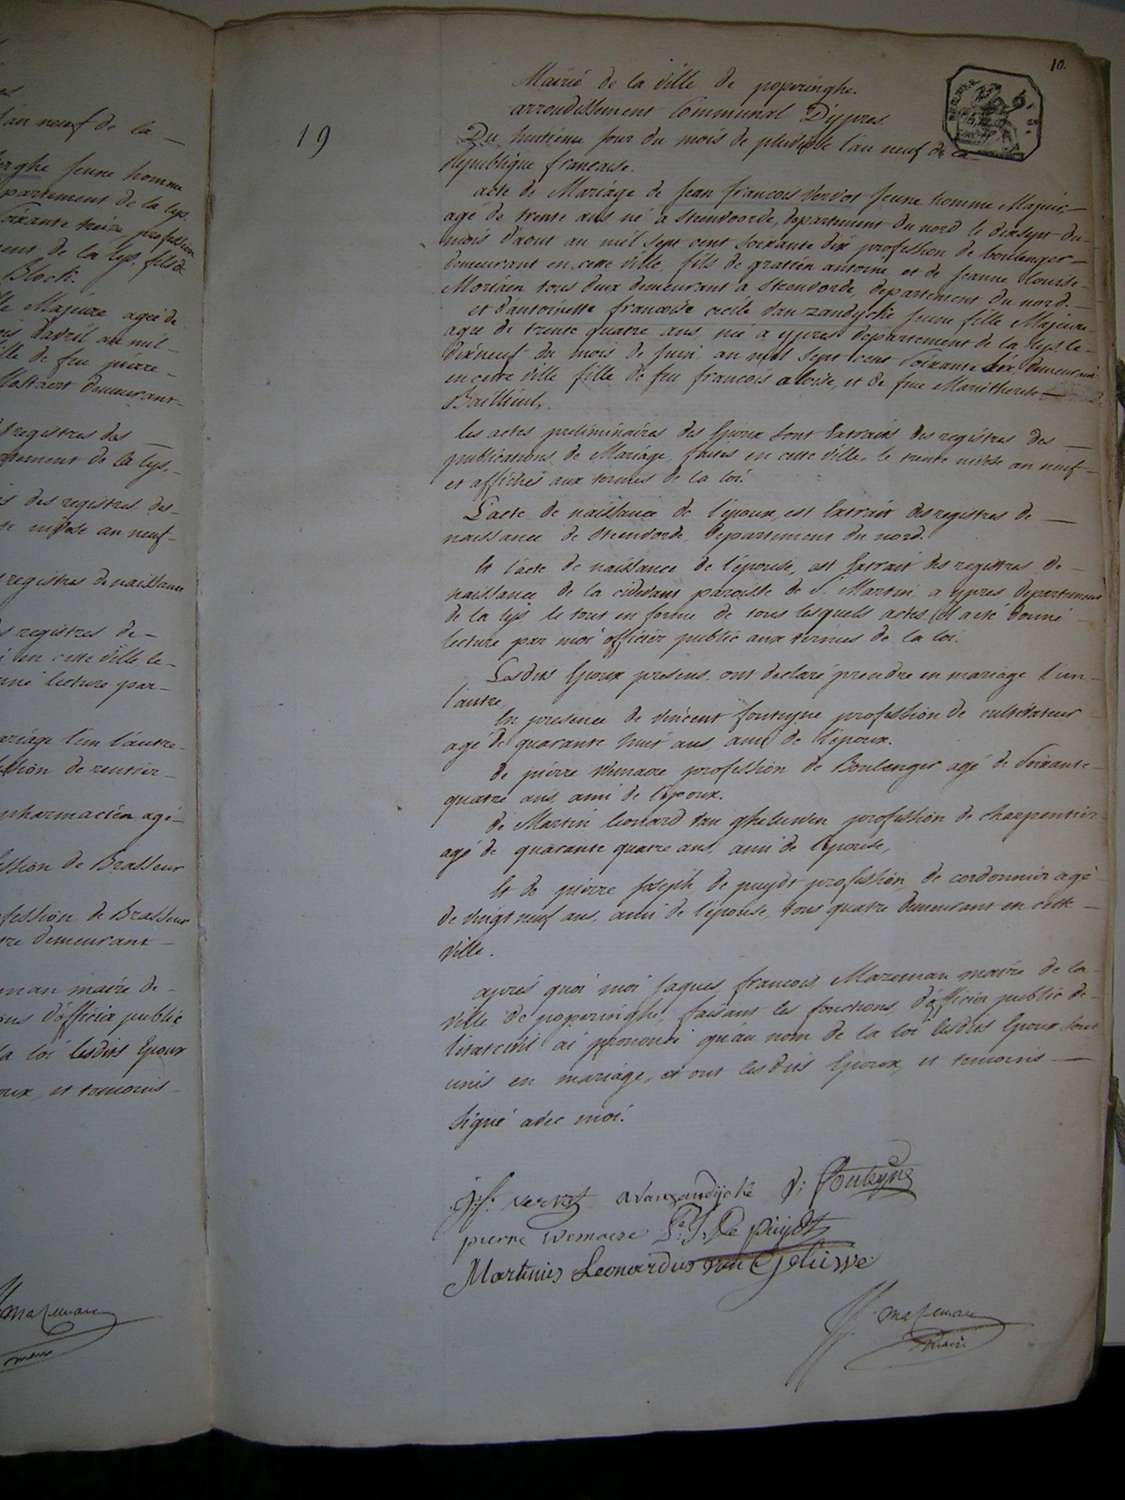 l'an neuf de la
jeune homme
partement de la lys,
soixante treize profession
ment de la lys, fils de
Block.
lle Majeure agée de
d'avril au mil
ille de feu pierre
demeurant
registres des
tement de la lys,
is des registres des
nivose an neuf
registres de naissance
s registres de
en cette ville le
nné lecture par
ariage l'un l'autre
ssion de rentier
pharmacien agé
ession de Brasseur
ofession de Brasseur
tre demeurant
man maire de
ons d'officier public
la loi lesdits Epoux
oux, et temoins
mazeman
maire
10.
19
Mairie de la ville de poperinghe.
arrondissement Communal D'ypres
Du huitieme jour du mois de pluviose l'an neuf de la
Republique francaise.
acte de Mariage de Jean francois vervot jeune homme Majeur
agé de trente ans né a Steenvoorde, departement du nord le dixsept du
mois d'aout an mil sept cent soixante dix profession de boulenger
demeurant en cette ville, fils de gratien antoine et de jeanne louise
Moriren tous deux demeurant a Steenvorde, departement du nord.
et d'antoinette francoise cecile van zandycke jeune fille Majeure
agee de trente quatre ans, née a ypres departement de la lys le
dixneuf du mois de juin an mil sept cent soixante six demeurant
en cette ville fille de feu francois aloise, et de feue Marietherese
Bailleul,
les actes preliminaires des Epoux sont Extraits des registres des
publications de Mariage, faites en cette ville, le trente nivose an neuf
et affichés aux termes de la loi.
L'acte de naissance de l'époux, est Extrait des registres de
naissance de Steenvorde, departement du nord.
Et l'acte de naissance de l'épouse, est Extrait des registres de
naissance de la cidevant paroisse de S. Martin a ypres departement
de la lys le tout en forme de tous lesquels actes il a eté donné
lecture par moi officier public aux termes de la loi.
Lesdits Epoux presens, ont declaré prendre en mariage l'un
l'autre,
En presence de vincent fouteyne profession de cultivateur
agé de quarante huit ans ami de l'époux.
de pierre Wemaere profession de Boulenger agé de soixante
quatre ans, ami de l'époux.
de Martin leonard van gheluwen profession de charpentier
agé de quarante quatre ans, ami de l'épouse,
Et de pierre joseph de puydt profession de cordonnier agé
de vingt neuf ans, ami de l'épouse, tous quatre demeurant en cette
ville.
aprés quoi moi jaques francois Mazeman maire de la
ville de poperinghe, faisant les fonctions d'officier public de
l'etat civil ai prononcé qu'au nom de la loi lesdits Epoux sont
unis en mariage, et ont lesdits Epoux, et temoins
signé avec moi.
j:f: vervot avanzandijcke V: fouteyne
pierre wemaere P: J: De Puijdt
Martinus Leonardus van Geluwe
J.f. mazeman
maire